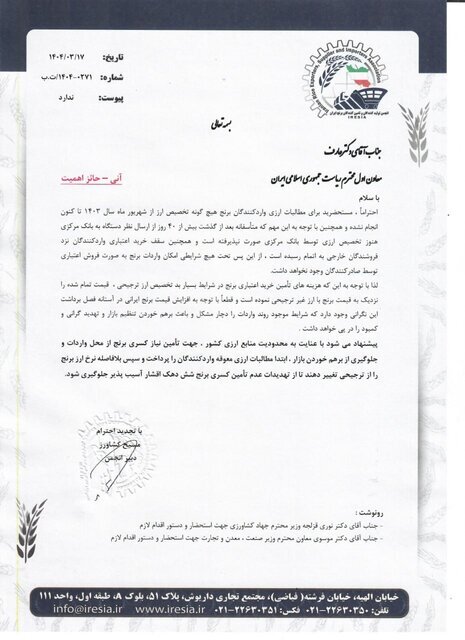 Iranian Rice Exporters, Supplier and Importers Association
انجمن تولید کنندگان و تامین کنندگان برنج ایران
IRESIA
تاریخ: ۱۴۰۴/۰۳/۱۷
شماره: ۱۴۰۴-۰۲۷۱/ت.ب
پیوست: ندارد
بسمه تعالی
جناب آقای دکتر عارف
معاون اول محترم ریاست جمهوری اسلامی ایران
آنی – حائز اهمیت
با سلام
احتراماً ، مستحضرید برای مطالبات ارزی واردکنندگان برنج هیچ گونه تخصیص ارز از شهریور ماه سال ۱۴۰۳ تا کنون
انجام نشده و همچنین با توجه به این مهم که متأسفانه بعد از گذشت بیش از ۴۰ روز از ارسال نظر دستگاه به بانک مرکزی
هنوز تخصیص ارزی توسط بانک مرکزی صورت نپذیرفته است و همچنین سقف خرید اعتباری واردکنندگان نزد
فروشندگان خارجی به اتمام رسیده است ، از این پس تحت هیچ شرایطی امکان واردات برنج به صورت فروش اعتباری
توسط صادرکنندگان وجود نخواهد داشت.
لذا با توجه به این که هزینه های تأمین خرید اعتباری برنج در شرایط بسیار بد تخصیص ارز ترجیحی ، قیمت تمام شده را
نزدیک به قیمت برنج با ارز غیر ترجیحی نموده است و قطعاً با توجه به افزایش قیمت برنج ایرانی در آستانه فصل برداشت
این نگرانی وجود دارد که شرایط موجود روند واردات را دچار مشکل و باعث برهم خوردن تنظیم بازار و تهدید گرانی و
کمبود را در پی خواهد داشت .
پیشنهاد می شود با عنایت به محدودیت منابع ارزی کشور ، جهت تأمین نیاز کسری برنج از محل واردات و
جلوگیری از برهم خوردن بازار ، ابتدا مطالبات ارزی معوقه واردکنندگان را پرداخت و سپس بلافاصله نرخ ارز برنج
را از ترجیحی تغییر دهند تا از تهدیدات عدم تأمین کسری برنج شش دهک اقشار آسیب پذیر جلوگیری شود.
با تجدید احترام
مسیح کشاورز
دبیر انجمن
رونوشت :
- جناب آقای دکتر نوری قزلجه وزیر محترم جهاد کشاورزی جهت استحضار و دستور اقدام لازم
- جناب آقای دکتر موسوی معاون محترم وزیر صنعت ، معدن و تجارت جهت استحضار و دستور اقدام لازم
خیابان الهیه، خیابان فرشته( فیاضی)، مجتمع تجاری داریوش، پلاک ۵۱، بلوک A، طبقه اول، واحد 111
تلفن: ۲۲۶۳۰۳۵۰-۰۲۱ فکس: ۲۲۶۳۰۳۵۱-۰۲۱ www.iresia.ir info@iresia.ir